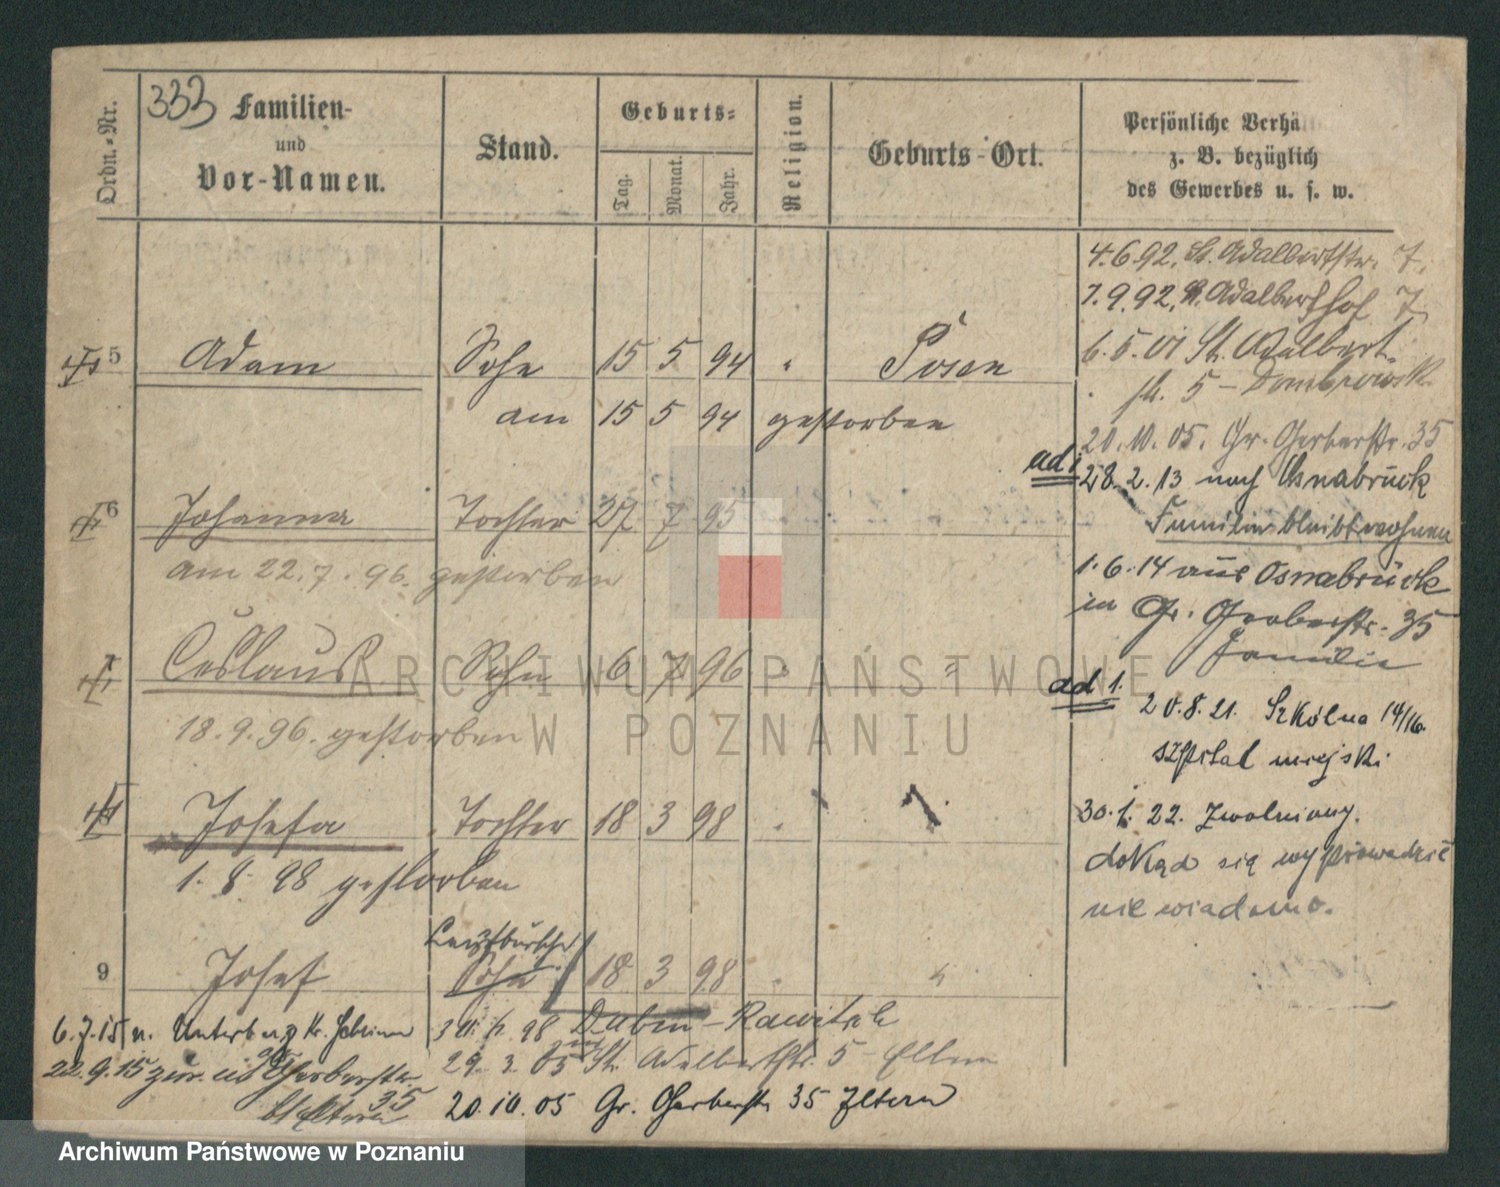 333 Familien-
und
Vor-Namen.
Ordn.-Nr.
Stand.
Geburts-
Tag.
Monat.
Jahr.
Religion.
Geburts-Ort.
Persönliche Verhä
z. B. bezüglich
des Gewerbes u. s. w.
4.6.92. St. Adalbertstr. 7.
7.9.92. St. Adalberthof 7
6.5.01 St. Adalbert-
str. 5 - Dombrowsk
20.10.05. Gr. Gerberstr. 35
ad 1 28.2.13 nach Osnabrück
Familie bleibt wohnen
1.6.14 aus Osnabrück
in Gr. Gerberstr. 35
Familie
ad 1. 20.8.21. Szkólna 14/16
szpital miejski
30.1.22. Zwolniony.
dokąd się wyprowadził
nie wiadomo.
5 Adam Sohn 15 5 94 " Posen
am 15 5 94 gestorben
6 Johanna Tochter 27 7 95 "
am 22.7.96. gestorben
7 Ceslaus Sohn 6 7 96 " "
18.9.96. gestorben
Josefa Tochter 18 3 98 "
1. 8 98 gestorben
9 Josef Sohn 18 3 98 " "
6.7.15 n. Kr.
98 Dubin - Rawitsch
22.9.15 zur. Gerberstr.
35 Eltern
29.3.05 St. Adalbertstr. 5 Eltern
20.10.05 Gr. Gerberstr 35 Eltern
ARCHIWUM PAŃSTWOWE
W POZNANIU
Archiwum Państwowe w Poznaniu